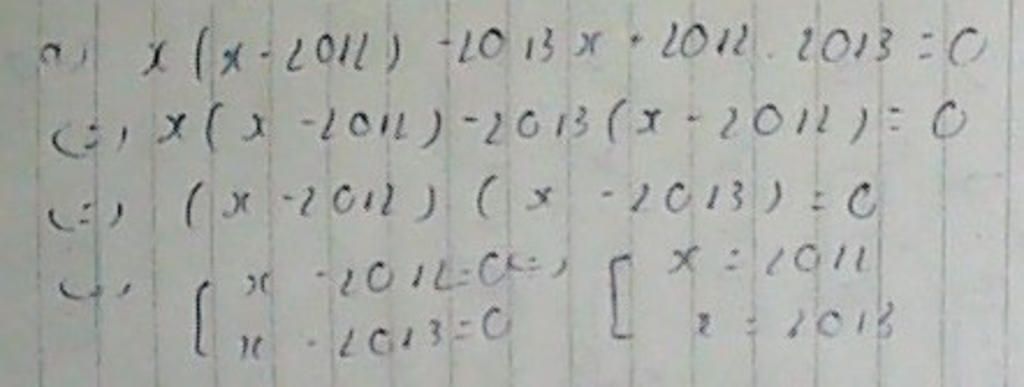 a) x(x-2012) -2013x + 2012 . 2013 = 0
<=> x(x -2012) -2013(x - 2012) = 0
<=> (x -2012) (x -2013) = 0
<=> [ x -2012=0 <=> [ x = 2012
x - 2013=0 x = 2013